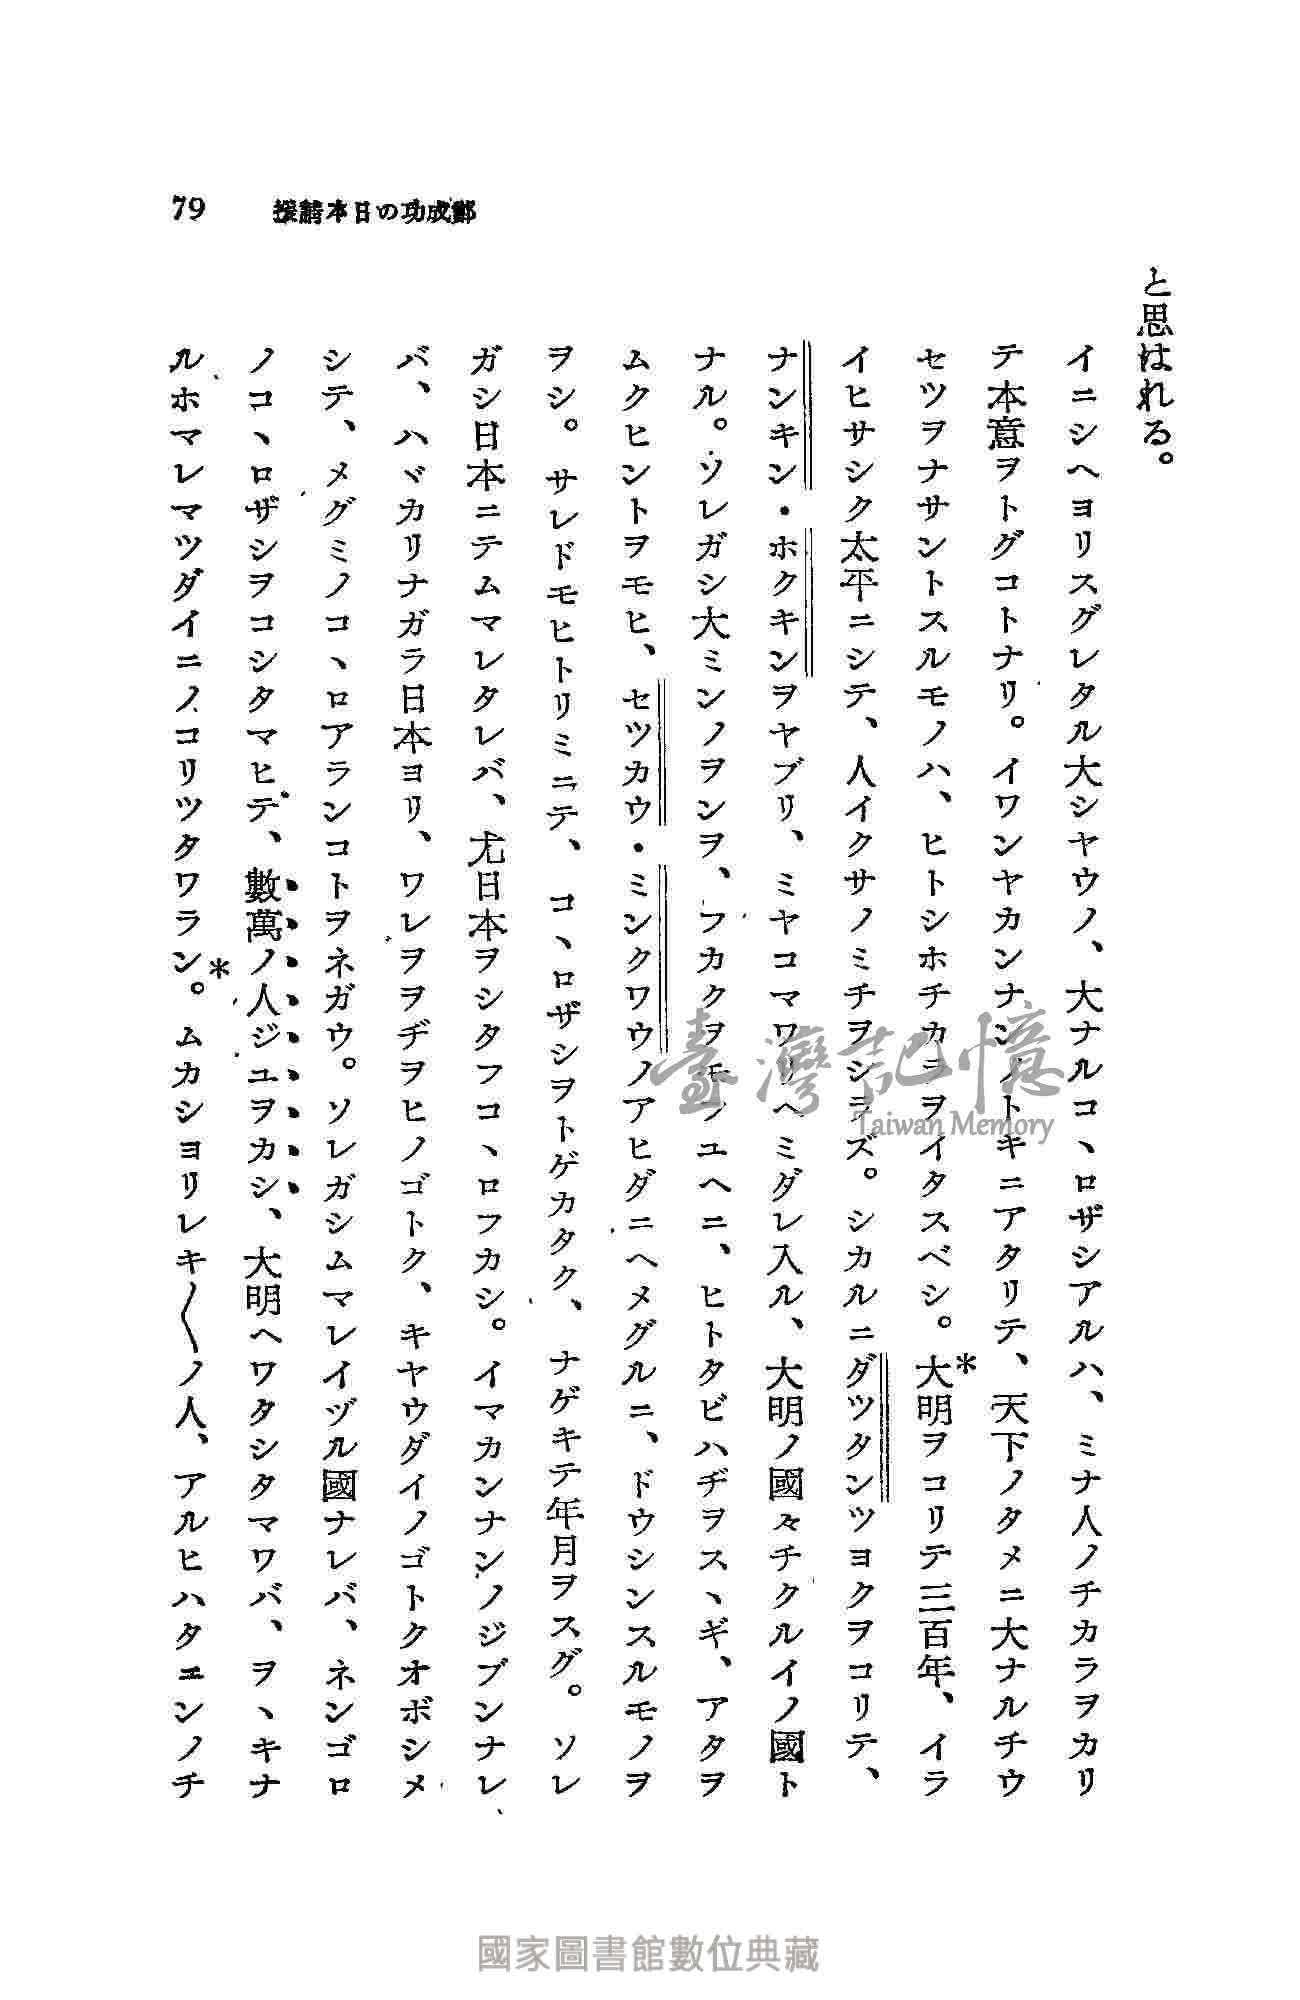 79 鄭成功の日本請援
と思はれる。
イニシヘヨリスグレタル大シヤウノ、大ナルコヽロザシアルハ、ミナ人ノチカラヲカリ
テ本意ヲトグコトナリ。イワンヤカンナンノトキニアタリテ、天下ノタメニ大ナルチウ
セツヲナサントスルモノハ、ヒトシホチカラヲイタスベシ。大明*ヲコリテ三百年、イラ
イヒサシク太平ニシテ、人イクサノミチヲシラズ。シカルニダツタンツヨクヲコリテ、
ナンキン・ホクキンヲヤブリ、ミヤコマワリヘミダレ入ル、大明ノ國々チクルイノ國ト
ナル。ソレガシ大ミンノヲンヲ、フカクヲモフユヘニ、ヒトタビハヂヲスヽギ、アタヲ
ムクヒントヲモヒ、セツカウ・ミンクワウノアヒダニヘメグルニ、ドウシンスルモノヲ
ヲシ。サレドモヒトリミニテ、コヽロザシヲトゲカタク、ナゲキテ年月ヲスグ。ソレ
ガシ日本ニテムマレタレバ、尤日本ヲシタフコヽロフカシ。イマカンナンノジブンナレ
バ、ハヾカリナガラ日本ヨリ、ワレヲヲヂヲヒノゴトク、キヤウダイノゴトクオボシメ
シテ、メグミノコヽロアランコトヲネガウ。ソレガシムマレイヅル國ナレバ、ネンゴロ
ノコヽロザシヲコシタマヒテ、數萬ノ人ジユヲカシ、大明ヘワタシタマワバ、ヲヽキナ
ルホマレマツダイニノコリツタワラン。*ムカシヨリレキ〱ノ人、アルヒハタエンノチ
臺灣記憶
Taiwan Memory
國家圖書館數位典藏